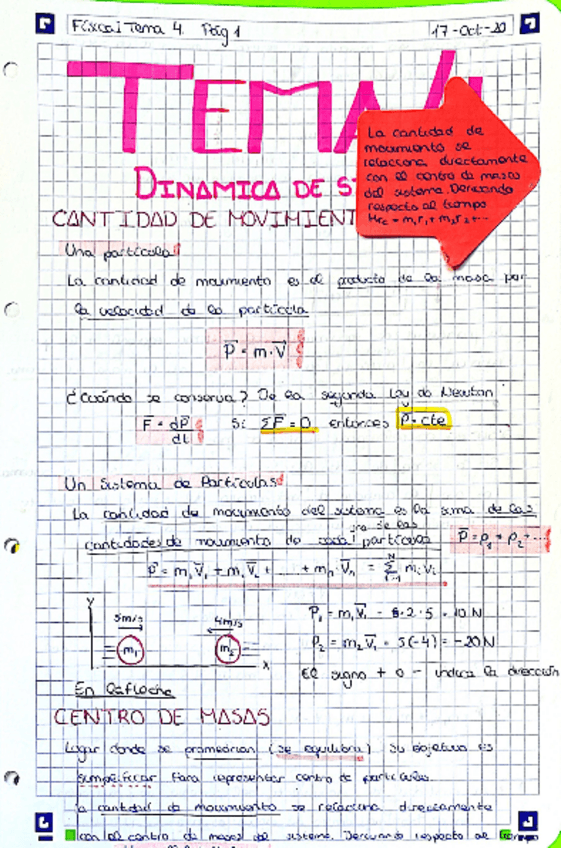 Física I Tema 4 Pág 1
17-Oct-20
TEMA 4
La cantidad de
movimiento se
relaciona directamente
con el centro de masas
del sistema. Derivando
respecto al tiempo
Mrc = m₁r₁ + m₂r₂ + ...
DINAMICA DE S
CANTIDAD DE MOVIMIENT
Una partícula
La cantidad de movimiento es el producto de la masa por
la velocidad de la partícula
P = m·V
¿Cuándo se conserva? De la segunda Ley de Newton
F = dP/dt Si ΣF = 0 entonces P = cte
Un Sistema de Partículas
La cantidad de movimiento del sistema es la suma de las
cantidades de movimiento de cada partículas P = p₁ + p₂ + ...
P = m₁V₁ + m₂V₂ + ...... + mₙ·Vₙ = Σ mᵢVᵢ
y
5m/s 4m/s
m₁ m₂
x
P₁ = m₁V₁ - 2·5 = 10 N
P₂ = m₂V₂ = 5(-4) = -20N
El signo + o - indica la dirección
En la flecha
CENTRO DE MASAS
Lugar donde se promedian (se equilibra) su objetivo es
simplificar para representar centro de partículas.
la cantidad de movimiento se relaciona directamente
con el centro de masas del sistema. Derivando respecto al tiempo